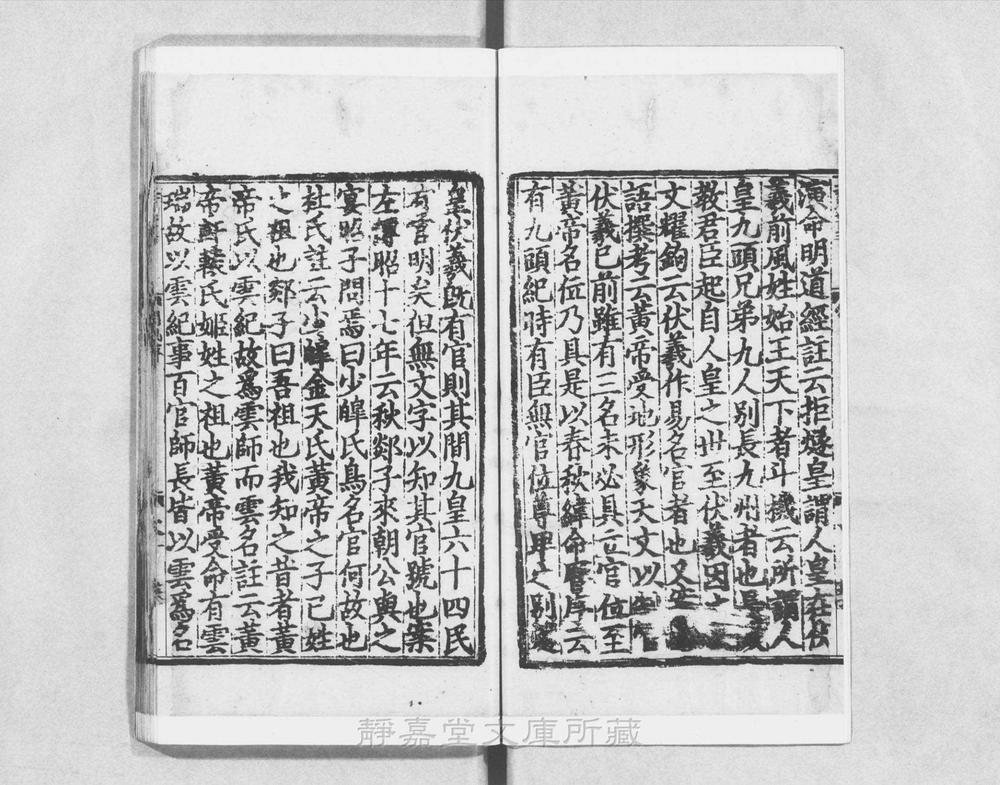 演命明道經註云拒燧皇謂人皇在伏
羲前風姓始王天下者斗機云所謂人
皇九頭兄弟九人別長九州者也是
教君臣起自人皇之世至伏羲因之
文耀鉤云伏羲作易名官者也又
語撰考云黃帝受地形象天文以
伏羲已前雖有三名未必具立官位至
黃帝名位乃具是以春秋緯命曆序云
有九頭紀時有臣無官位尊卑之別
皇伏羲旣有官則其間九皇六十四民
有官明矣但無文字以知其官號也案
左傳昭十七年云秋郯子來朝公與之
宴昭子問焉曰少皞氏鳥名官何故也
杜氏註云少皞金天氏黃帝之子己姓
之祖也郯子曰吾祖也我知之昔者黃
帝氏以雲紀故爲雲師而雲名註云黃
帝軒轅氏姬姓之祖也黃帝受命有雲
瑞故以雲紀事百官師長皆以雲爲名
靜嘉堂文庫所藏